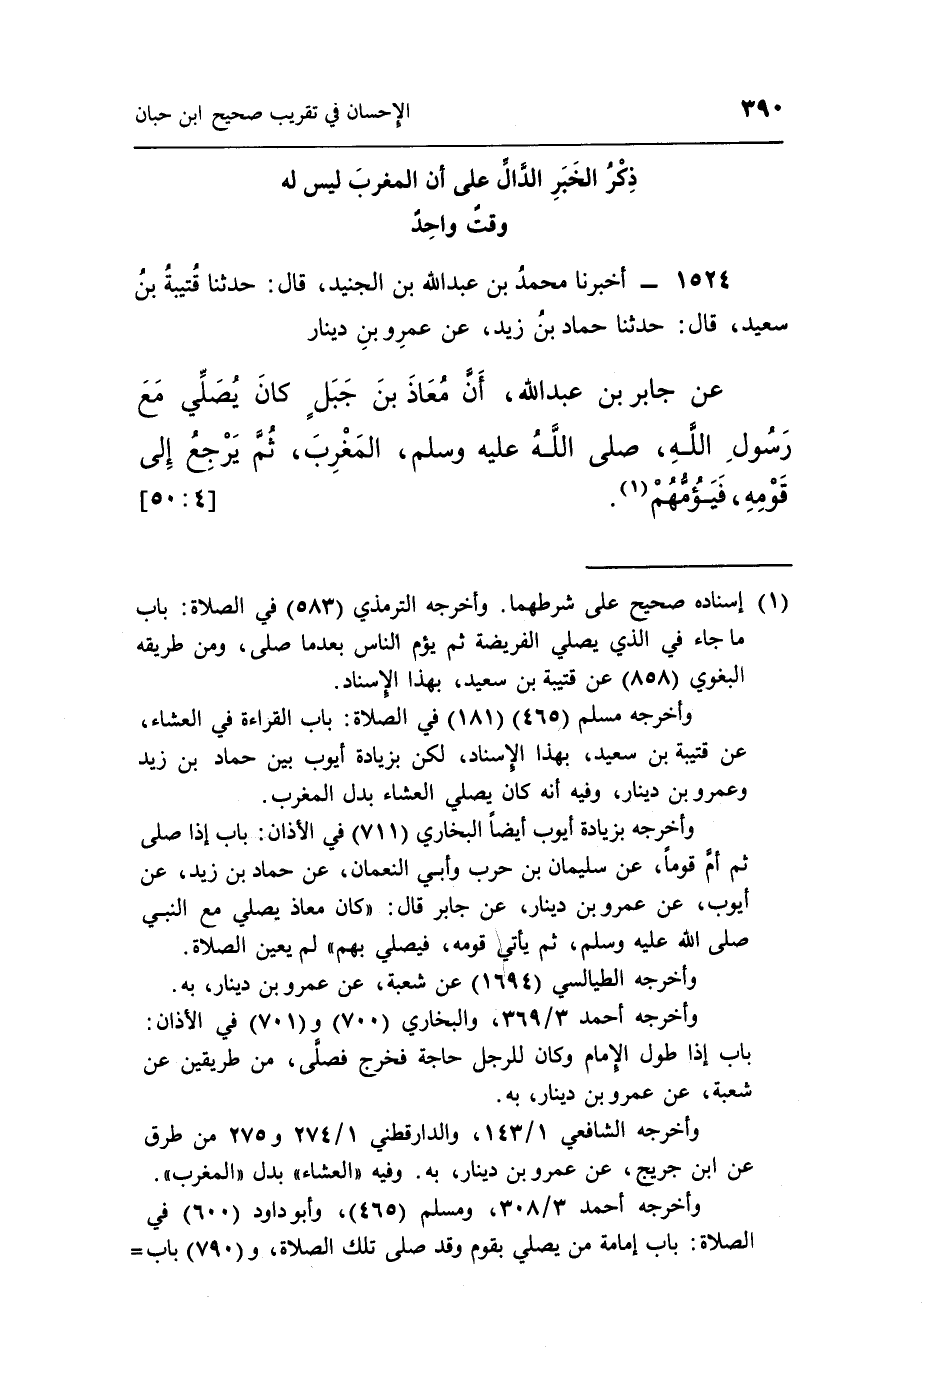 ٣٩٠
الإحسان في تقريب صحيح ابن حبان
ذِكْرُ الخَبَرِ الدَّالِّ على أن المغربَ ليس له
وقتٌ واحِدٌ
١٥٢٤ ــ أخبرنا محمدُ بن عبدالله بن الجنيد، قال: حدثنا قُتيبةُ بنُ
سعيد، قال: حدثنا حماد بنُ زيد، عن عمرِو بنِ دينار
عن جابر بن عبدالله، أَنَّ مُعَاذَ بنَ جَبَلٍ كانَ يُصَلِّي مَعَ
رَسُولِ اللَّهِ، صلى اللَّهُ عليه وسلم، المَغْرِبَ، ثُمَّ يَرْجِعُ إلى
قَوْمِهِ، فَيَؤُمُّهُمْ(١). [٤:٥٠]
(١) إسناده صحيح على شرطهما. وأخرجه الترمذي (٥٨٣) في الصلاة: باب
ما جاء في الذي يصلي الفريضة ثم يؤم الناس بعدما صلى، ومن طريقه
البغوي (٨٥٨) عن قتيبة بن سعيد، بهذا الإسناد.
وأخرجه مسلم (٤٦٥) (١٨١) في الصلاة: باب القراءة في العشاء،
عن قتيبة بن سعيد، بهذا الإسناد، لكن بزيادة أيوب بين حماد بن زيد
وعمرو بن دينار، وفيه أنه كان يصلي العشاء بدل المغرب.
وأخرجه بزيادة أيوب أيضاً البخاري (٧١١) في الأذان: باب إذا صلى
ثم أمَّ قوماً، عن سليمان بن حرب وأبي النعمان، عن حماد بن زيد، عن
أيوب، عن عمرو بن دينار، عن جابر قال: «كان معاذ يصلي مع النبي
صلى الله عليه وسلم، ثم يأتي قومه، فيصلي بهم» لم يعين الصلاة.
وأخرجه الطيالسي (١٦٩٤) عن شعبة، عن عمرو بن دينار، به.
وأخرجه أحمد ٣٦٩/٣، والبخاري (٧٠٠) و(٧٠١) في الأذان:
باب إذا طول الإمام وكان للرجل حاجة فخرج فصلَّى، من طريقين عن
شعبة، عن عمرو بن دينار، به.
وأخرجه الشافعي ١٤٣/١، والدارقطني ٢٧٤/١ و٢٧٥ من طرق
عن ابن جريج، عن عمرو بن دينار، به. وفيه «العشاء» بدل «المغرب».
وأخرجه أحمد ٣٠٨/٣، ومسلم (٤٦٥)، وأبو داود (٦٠٠) في
الصلاة: باب إمامة من يصلي بقوم وقد صلى تلك الصلاة، و(٧٩٠) باب=